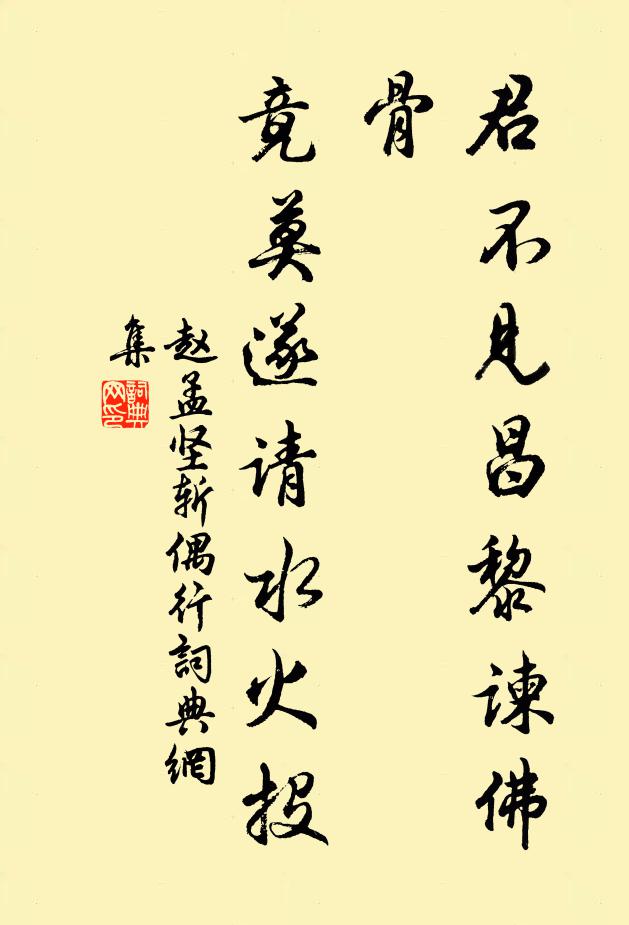 君不见昌黎谏佛
骨
竟莫遂请水火投
赵孟坚斩偶行詞典網
集
詞典网印